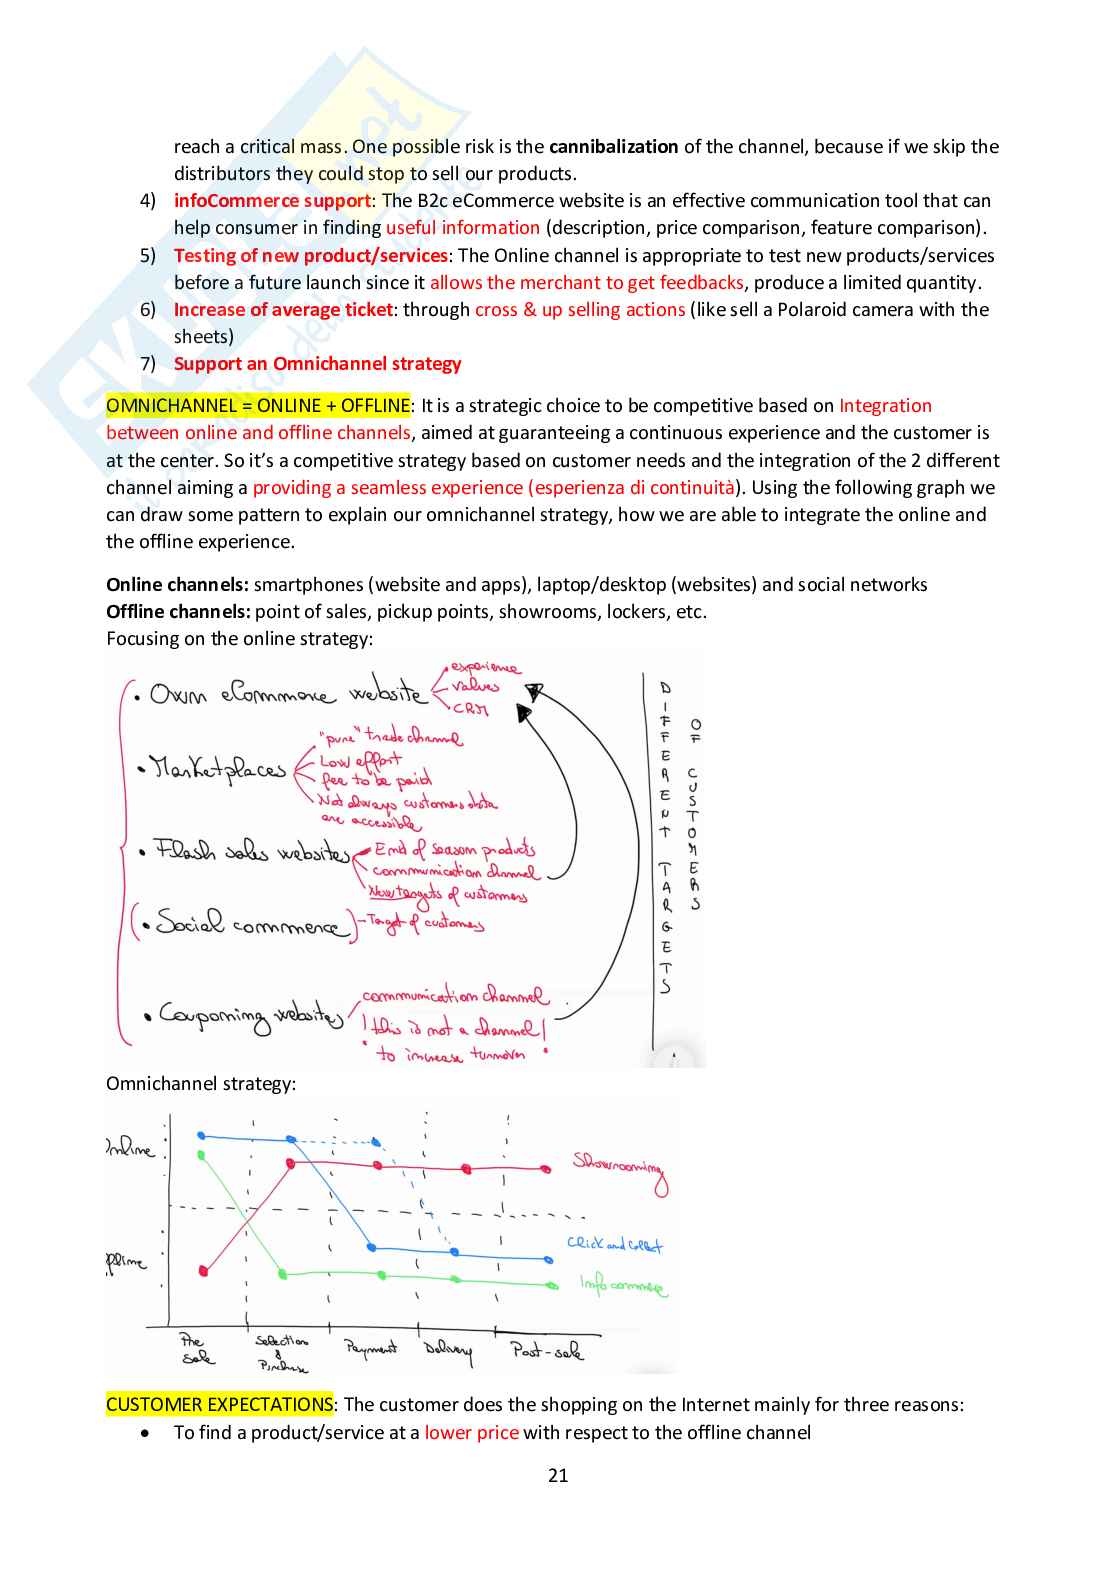 reach a critical mass. One possible risk is the cannibalization of the channel, because if we skip the
distributors they could stop to sell our products.
4) infoCommerce support: The B2c eCommerce website is an effective communication tool that can
help consumer in finding useful information (description, price comparison, feature comparison).
5) Testing of new product/services: The Online channel is appropriate to test new products/services
before a future launch since it allows the merchant to get feedbacks, produce a limited quantity.
6) Increase of average ticket: through cross & up selling actions (like sell a Polaroid camera with the
sheets)
7) Support an Omnichannel strategy
OMNICHANNEL = ONLINE + OFFLINE: It is a strategic choice to be competitive based on Integration
between online and offline channels, aimed at guaranteeing a continuous experience and the customer is
at the center. So it's a competitive strategy based on customer needs and the integration of the 2 different
channel aiming a providing a seamless experience (esperienza di continuità). Using the following graph we
can draw some pattern to explain our omnichannel strategy, how we are able to integrate the online and
the offline experience.
Online channels: smartphones (website and apps), laptop/desktop (websites) and social networks
Offline channels: point of sales, pickup points, showrooms, lockers, etc.
Focusing on the online strategy:
• Own eCommerce website
experience
values
CRM
• Marketplaces
"pure" trade channel
Low effort
fee to be paid
Not always customers data
are accessible
• Flash sales websites
End of season products
communication channel
New targets of customers
(• Social commerce) - Target of customers
• Couponing websites
communication channel
! this is not a channel !
to increase turnover
DIFFERENT TARGETS
OF CUSTOMERS
Omnichannel strategy:
Online
Showrooming
Click and collect
Info commerce
Pre
sale
Selection
&
Purchase
Payment
Delivery
Post-sale
CUSTOMER EXPECTATIONS: The customer does the shopping on the Internet mainly for three reasons:
• To find a product/service at a lower price with respect to the offline channel
21